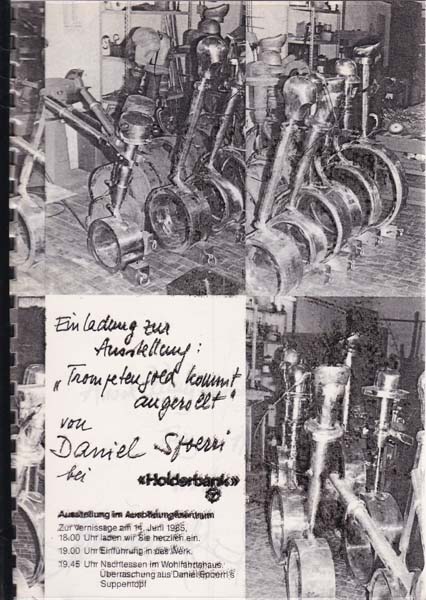 Einladung zur
Ausstellung:
"Trompetengold kommt
angerollt"
von
Daniel Spoerri
bei
«Holderbank»
Ausstellung im Ausbildungszentrum
Zur Vernissage am 14. Juni 1985,
18.00 Uhr laden wir Sie herzlich ein.
19.00 Uhr Einführung in das Werk.
19.45 Uhr Nachtessen im Wohlfahrtshaus.
Überraschung aus Daniel Spoerri's
Suppentopf